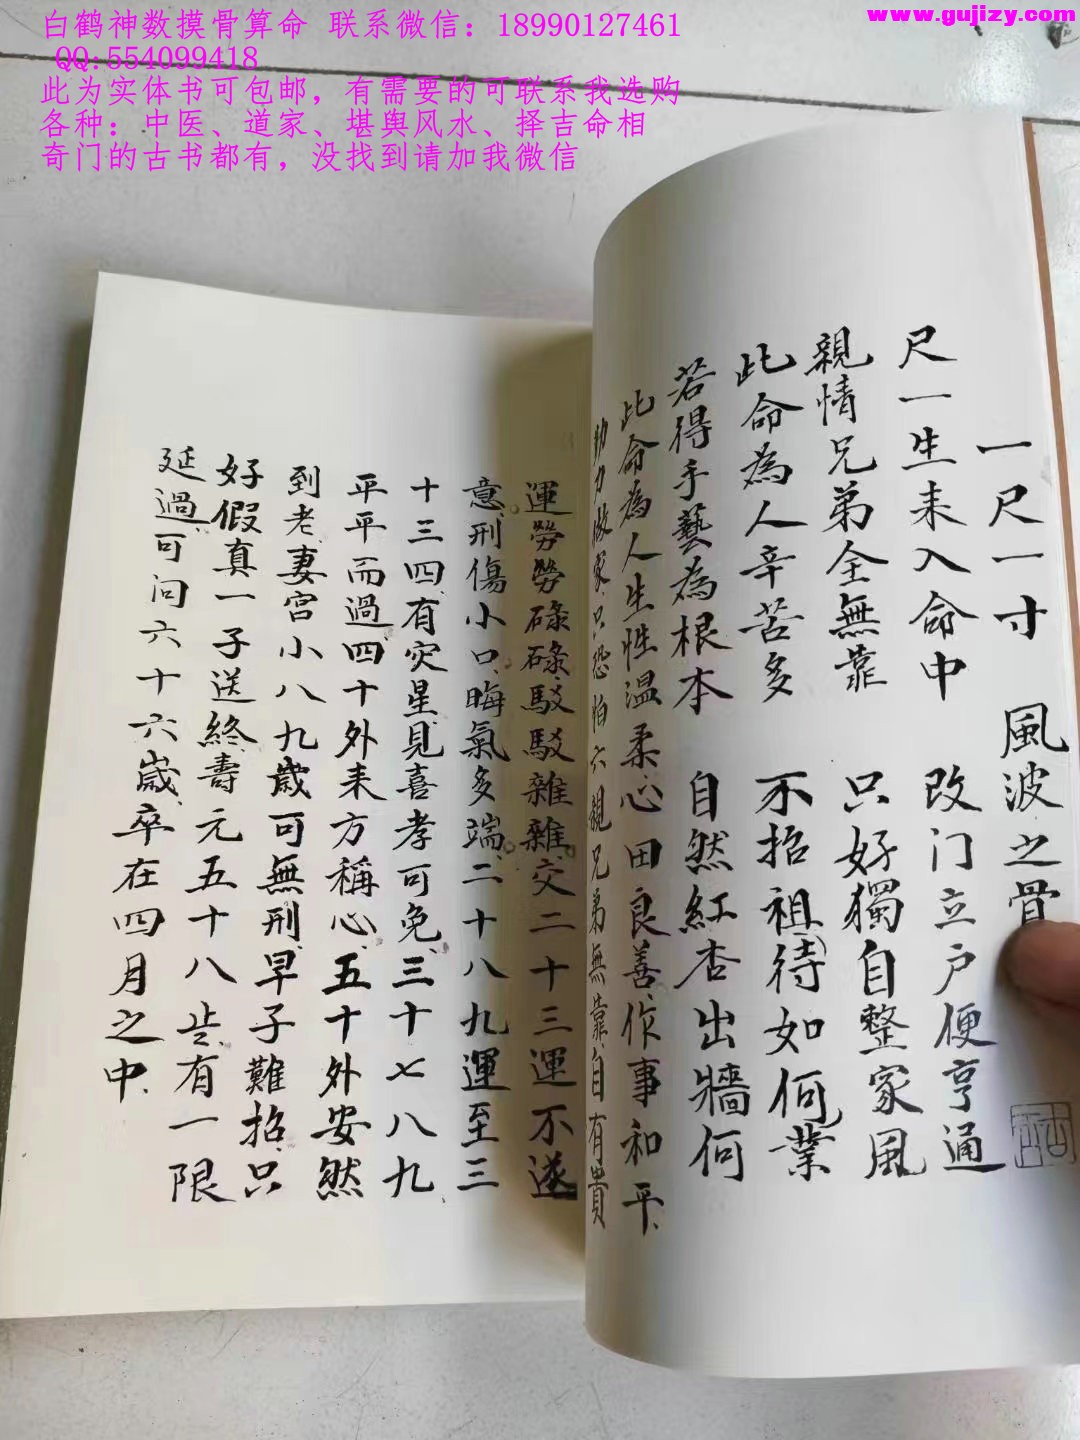 白鹤神数摸骨算命 联系微信：18990127461
QQ:554099418
此为实体书可包邮，有需要的可联系我选购
各种：中医、道家、堪舆风水、择吉命相
奇门的古书都有，没找到请加我微信
www.gujizy.com
一尺一寸 風波之骨
尺一生来入命中 改门立户便亨通
親情兄弟全無靠 只好獨自整家風
此命為人辛苦多 不招祖待如何業
若得手藝為根本 自然紅杏出牆何
此命為人生性温柔心田良善作事和平、
勤力做家、只恐怕六親兄弟無靠自有貴
運勞勞碌碌駁駁雜雜、交二十三運不遂
意、刑傷小口、晦氣多端、二十八九運至三
十三四、有灾星、見喜孝可免、三十七八九
平平而過四十外来方稱心、五十外安然
到老妻宫小八九歲可無刑早子難招、只
好假真一子送終壽元五十八岁、有一限
延過、可问六十六歲、卒在四月之中、